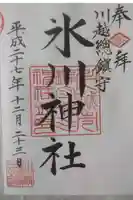 奉拝
川越總鎮守
氷川神社
平成二十七年十二月二十三日